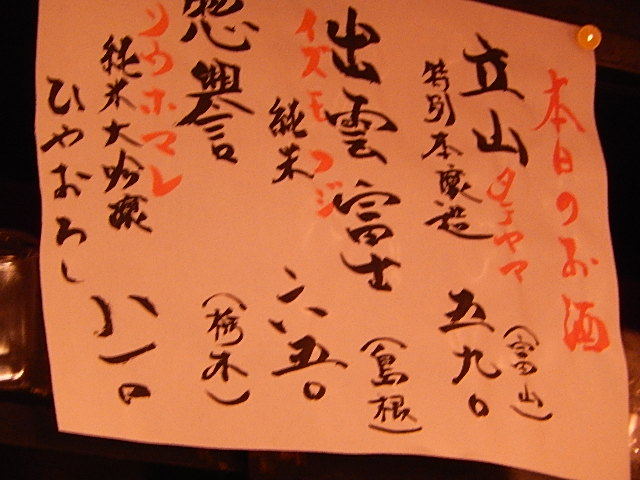 本日のお酒
立山 タテヤマ
特別本醸造
(富山)
五九〇
出雲富士
イズモフジ
純米
(島根)
六五〇
惣譽
ソウホマレ
純米大吟醸
ひやおろし
(栃木)
八一〇